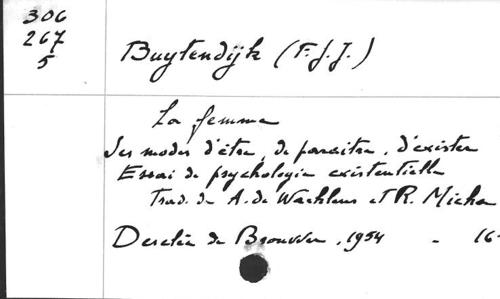 306
267
5
Buytendijk (F.J.J.)
La femme
Ses modes d'être, de paraître, d'exister
Essai de psychologie existentielle
Trad. de A. de Waelhens et R. Micha
Desclée de Brouwer, 1954 - 16-